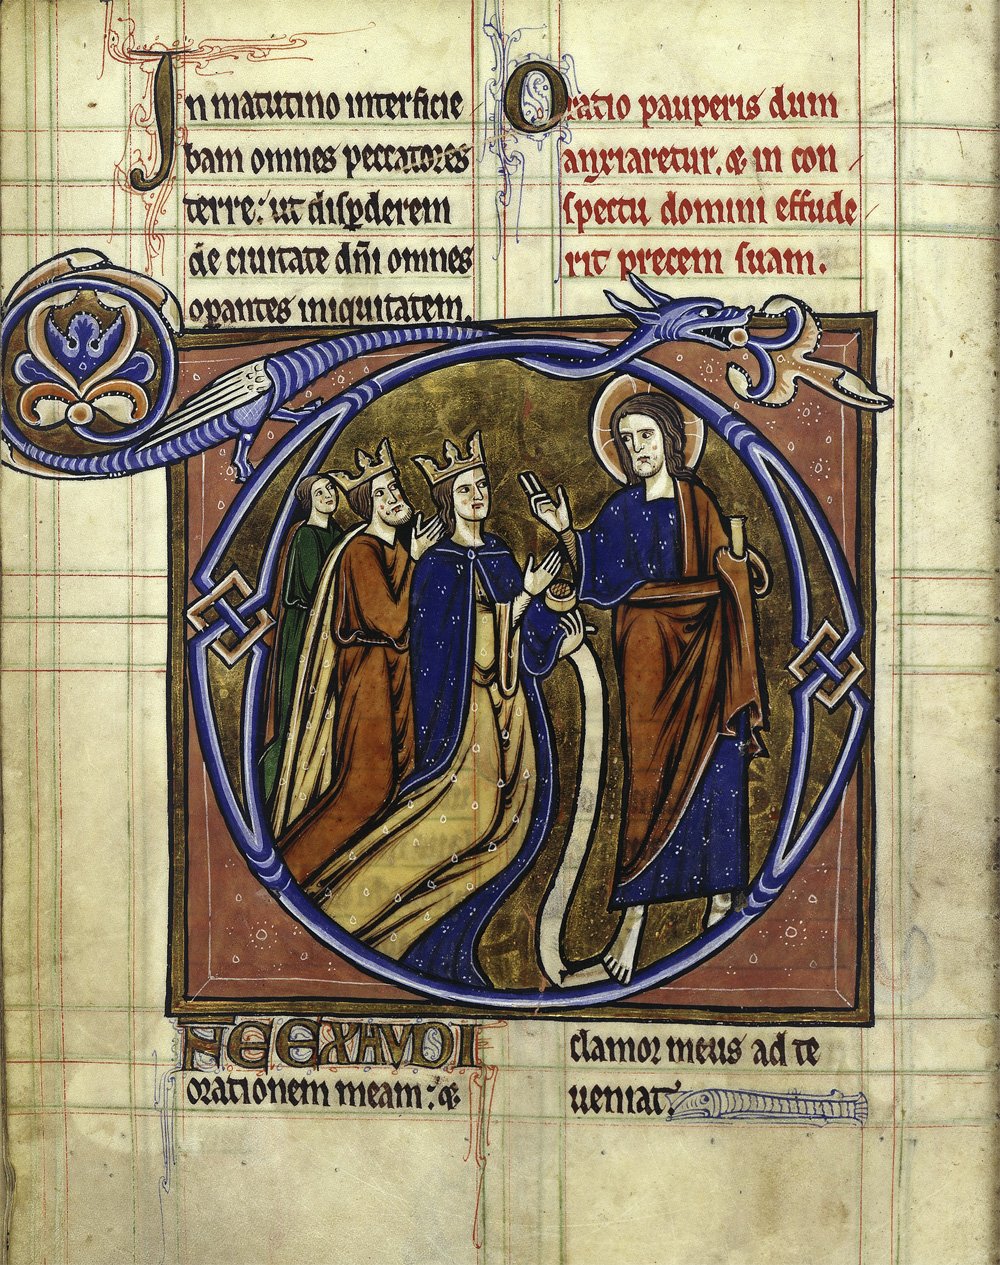 In matutino interficie
bam omnes peccatores
terre: ut disꝑderem
de ciuitate dñi omnes
oꝑantes iniquitatem.
Oratio pauperis dum
anxiaretur. & in con
spectu domini effude
rit precem suam.
DÑE EXAVDI
orationem meam: &
clamor meus ad te
ueniat.